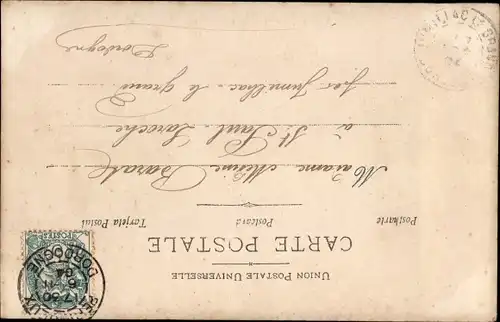 UNION POSTALE UNIVERSELLE
CARTE POSTALE
Postkarte Postcard Tarjeta Postal
PERIGUEUX
7 30
04
DORDOGNE
Madame Meline Barat
à St Paul - Laroche
par Jumilhac - le grand
Dordogne